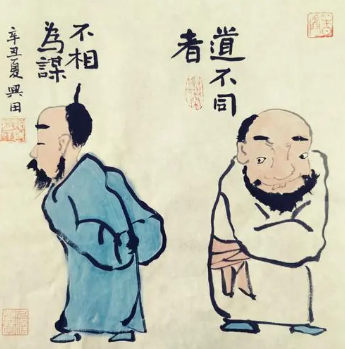 道不同
者
不相
為謀
辛丑夏興田